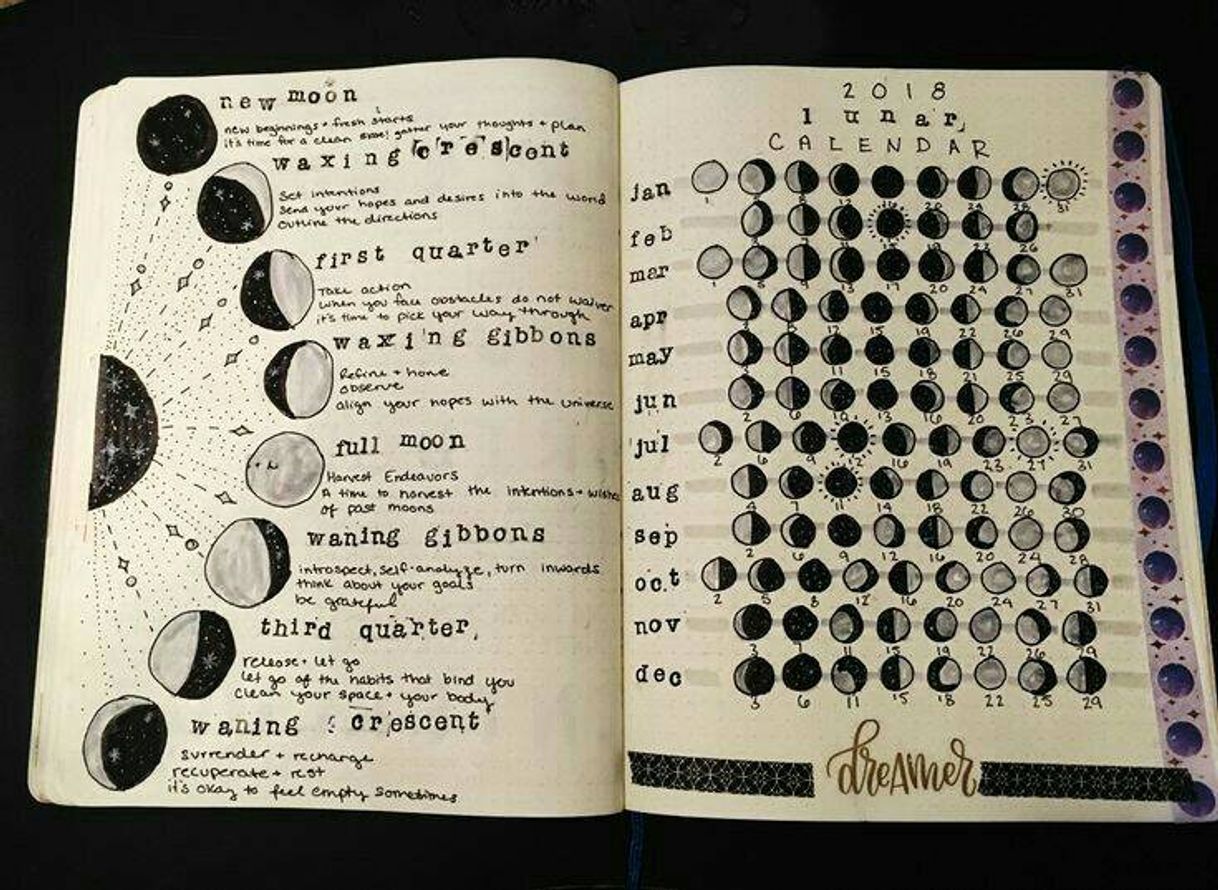 new moon
new beginnings + fresh starts
it's time for a clean slate! gather your thoughts + plan
waxing crescent
Set intentions
Send your hopes and desires into the world
outline the directions
first quarter
Take action
when you face obstacles do not waiver
it's time to pick your way through
waxing gibbons
Refine + hone
observe
align your hopes with the universe
full moon
Harvest Endeavors
A time to harvest the intentions + wishes
of past moons
waning gibbons
introspect, self-analyze, turn inwards
think about your goals
be grateful
third quarter
release + let go
let go of the habits that bind you
clean your space + your body
waning crescent
surrender + recharge
recuperate + rest
it's okay to feel empty sometimes
2018
lunar
CALENDAR
jan
1 31
feb
26
mar
1 5 9 13 17 20 24 27 31
apr
12 15 19 22 26 29
may
11 15 18 21 25 29
jun
2 6 13 16 20 23 27
jul
2 6 9 12 16 19 23 27 31
aug
4 7 11 18 22 26 30
sep
2 6 9 12 16 20 24 28
oct
2 5 8 12 16 20 24 27 31
nov
3 7 11 15 19 22 26 29
dec
3 6 11 15 18 22 25 29
dreamer